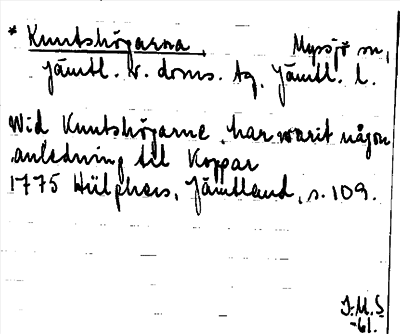 * Knutshögarna, Myssjö sn,
Jämtl. v. doms. tg, Jämtl. l.
Wid Knutshögarne har warit någon
anledning til Koppar
1775 Hülphers, Jämtland, s. 109.
J.M.S
-61.